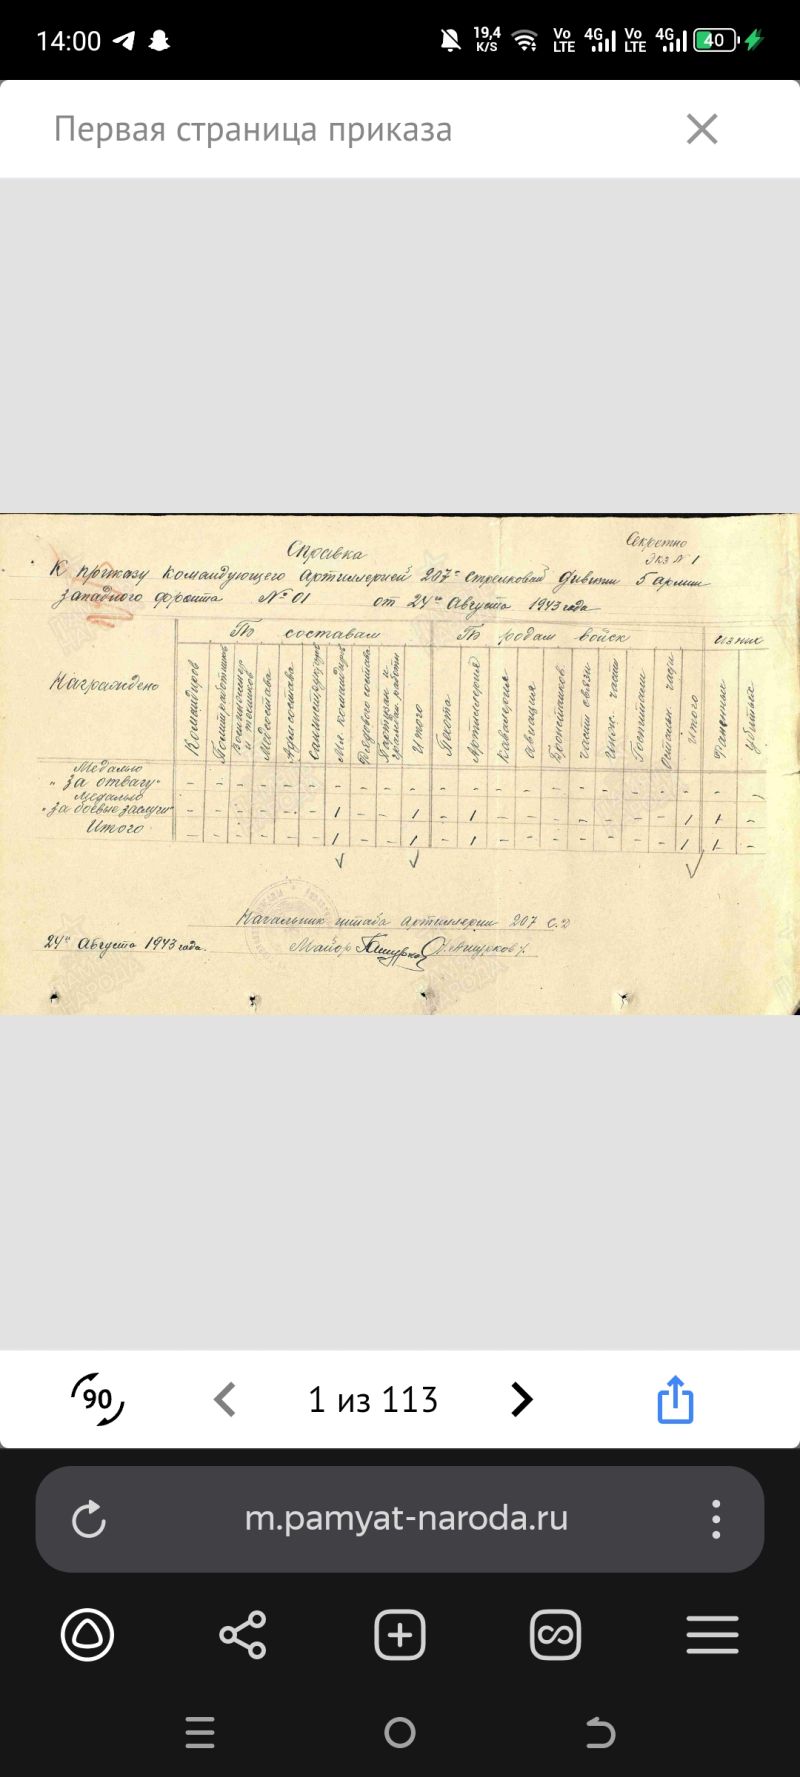 14:00
19,4 K/S
Vo LTE 4G Vo LTE 4G 40
Первая страница приказа
Секретно
Экз № 1
Справка
К приказу Командующего Артиллерией 207й Стрелковой Дивизии 5 армии
Западного фронта № 01 от 24го Августа 1943 года
Награждено
По составам
По родам войск
из них
Командиров
Политработников
Медсостава
Админсостава
Мл. командиров
Рядового состава
Итого
Пехота
Артиллерия
Кавалерия
Авиация
части связи
Инж. части
Госпитали
Остальн. части
Итого
Раненные
Убитых
Медалью
"за отвагу" - - - - - - - - - - - - - - - - - - - - - -
Медалью
"за боевые заслуги" - - - - - - 1 - - 1 - 1 - - - - - - - 1 1 -
Итого - - - - - - 1 - - 1 - 1 - - - - - - - 1 1 -
Начальник штаба артиллерии 207 С.Д
24го Августа 1943 года.
Майор
1 из 113
90
m.pamyat-naroda.ru